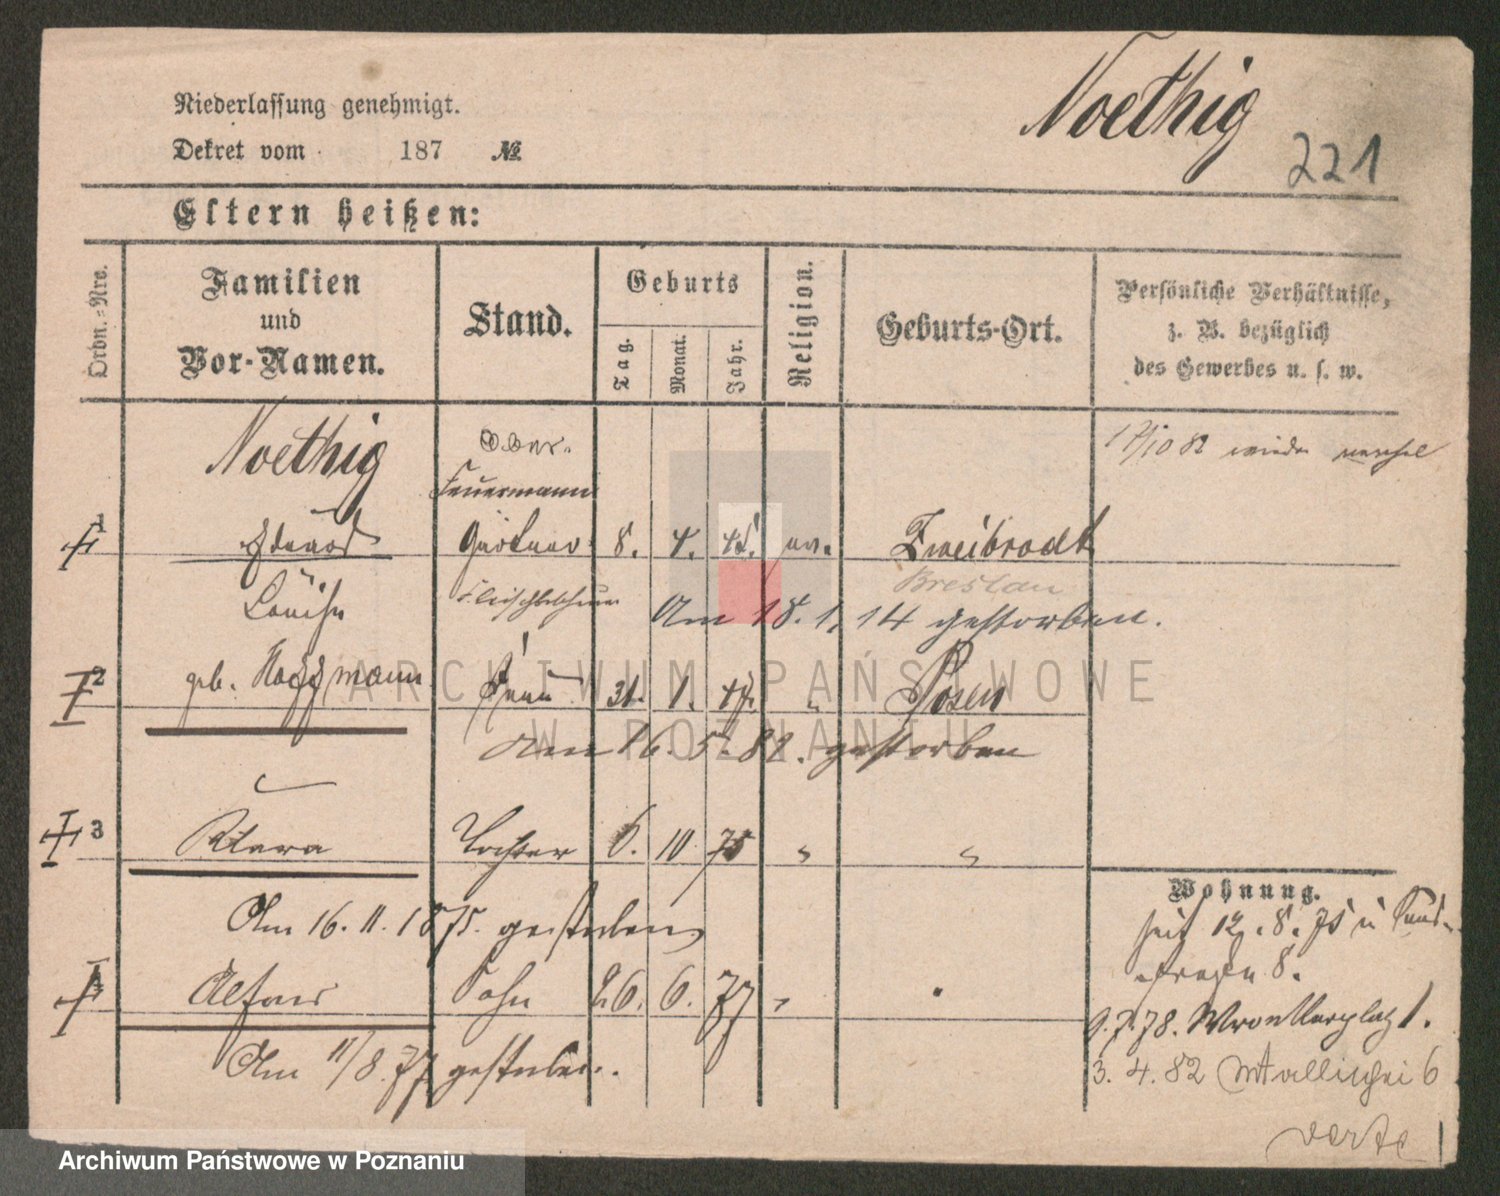 Noethig
221
Niederlassung genehmigt.
Dekret vom 187 №
Eltern heißen:
Ordn.-Nro.
Familien
und
Vor-Namen.
Stand.
Geburts
Tag.
Monat.
Jahr.
Religion.
Geburts-Ort.
Persönliche Verhältnisse,
z. B. bezüglich
des Gewerbes u. s. w.
Noethig
Ober-
Feuermann
17/10 82 wieder
1 Eduard Gärtner 8. 4. ev. Zweibrodt
Breslau
Louise
Am 18. 1. 14 gestorben.
2 geb. Hoffmann Frau 31. 1. 47. " Posen
Am 16. 5. 82. gestorben
3 Klara Tochter 6. 10 75 " "
Am 16. 11. 1875. gestorben
Alfons Sohn 26. 6. 77 "
Am 11/8. 77 gestorben.
Wohnung.
seit 12. 8. 75
8.
9. 7. 78. Wronkerplatz 1.
3. 4. 82 Wallischei 6
verte
ARCHIWUM PAŃSTWOWE
W POZNANIU
Archiwum Państwowe w Poznaniu